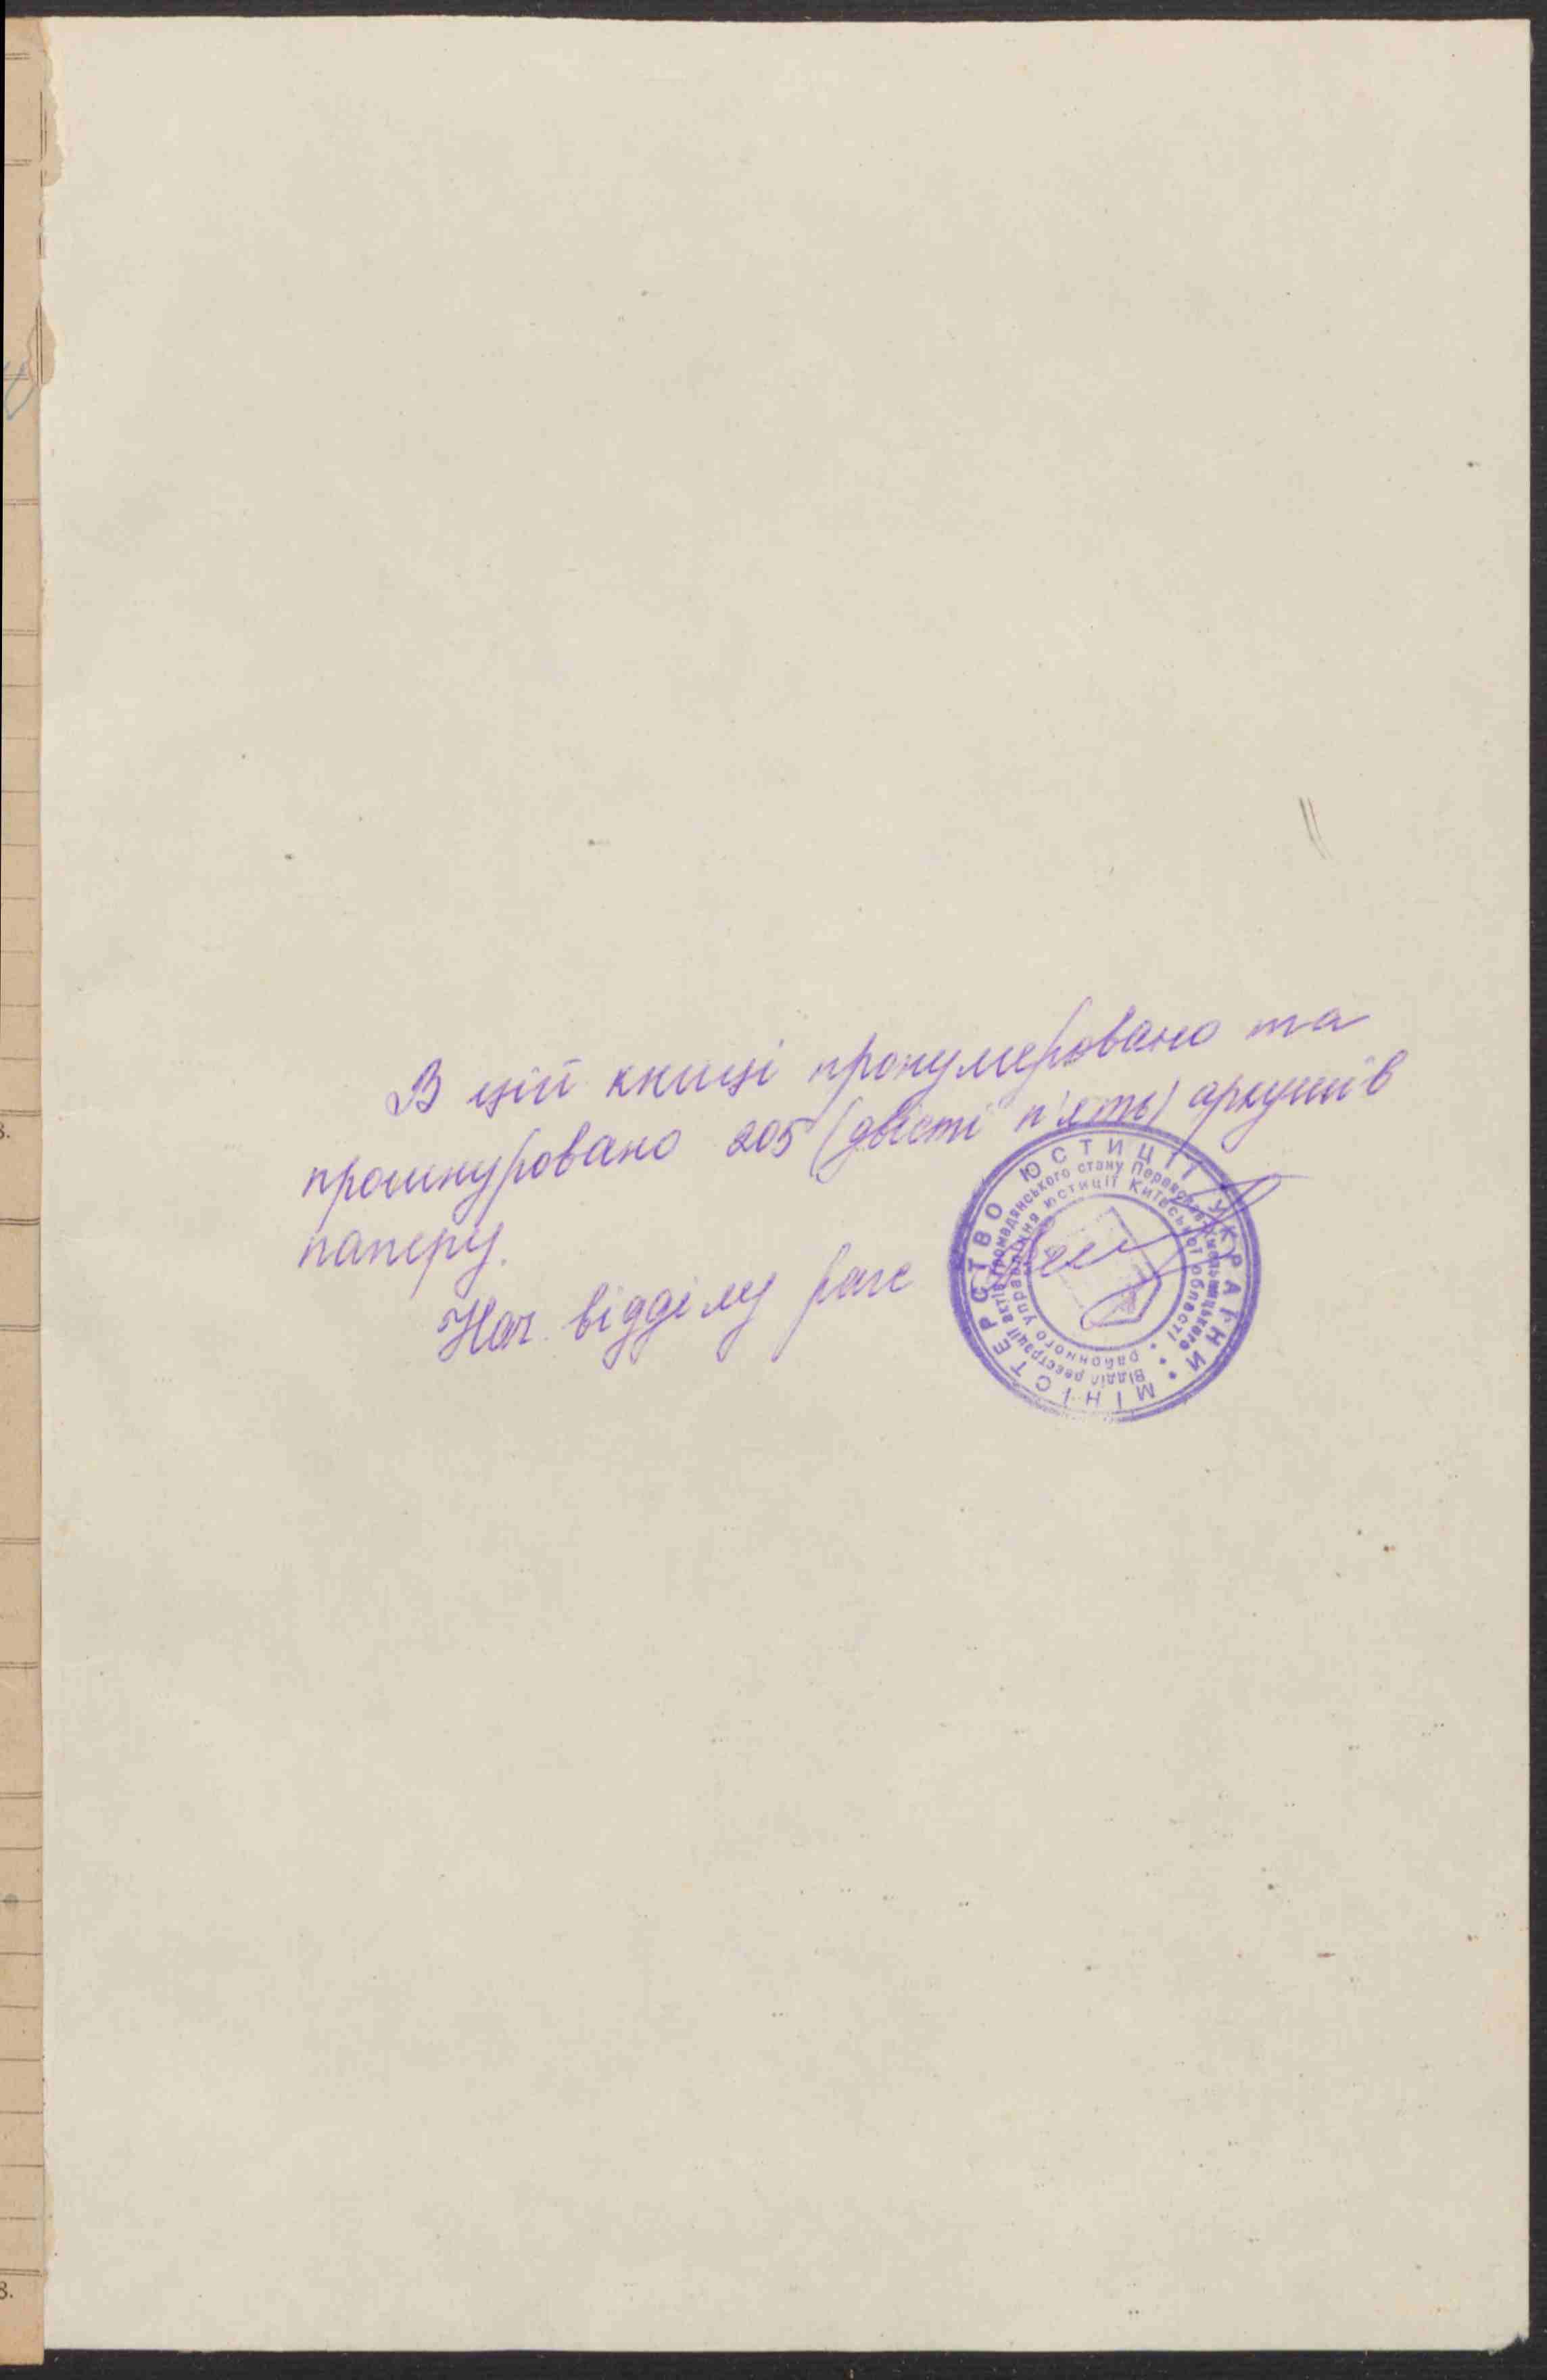 В цій книзі пронумеровано та
прошнуровано 205 (двісті п'ять) аркушів
паперу.
Нач. відділу рагс
МІНІСТЕРСТВО ЮСТИЦІЇ УКРАЇНИ
Відділ реєстрації актів громадянського стану Переяслав-Хмельницького
районного управління юстиції Київської області
8.
8.